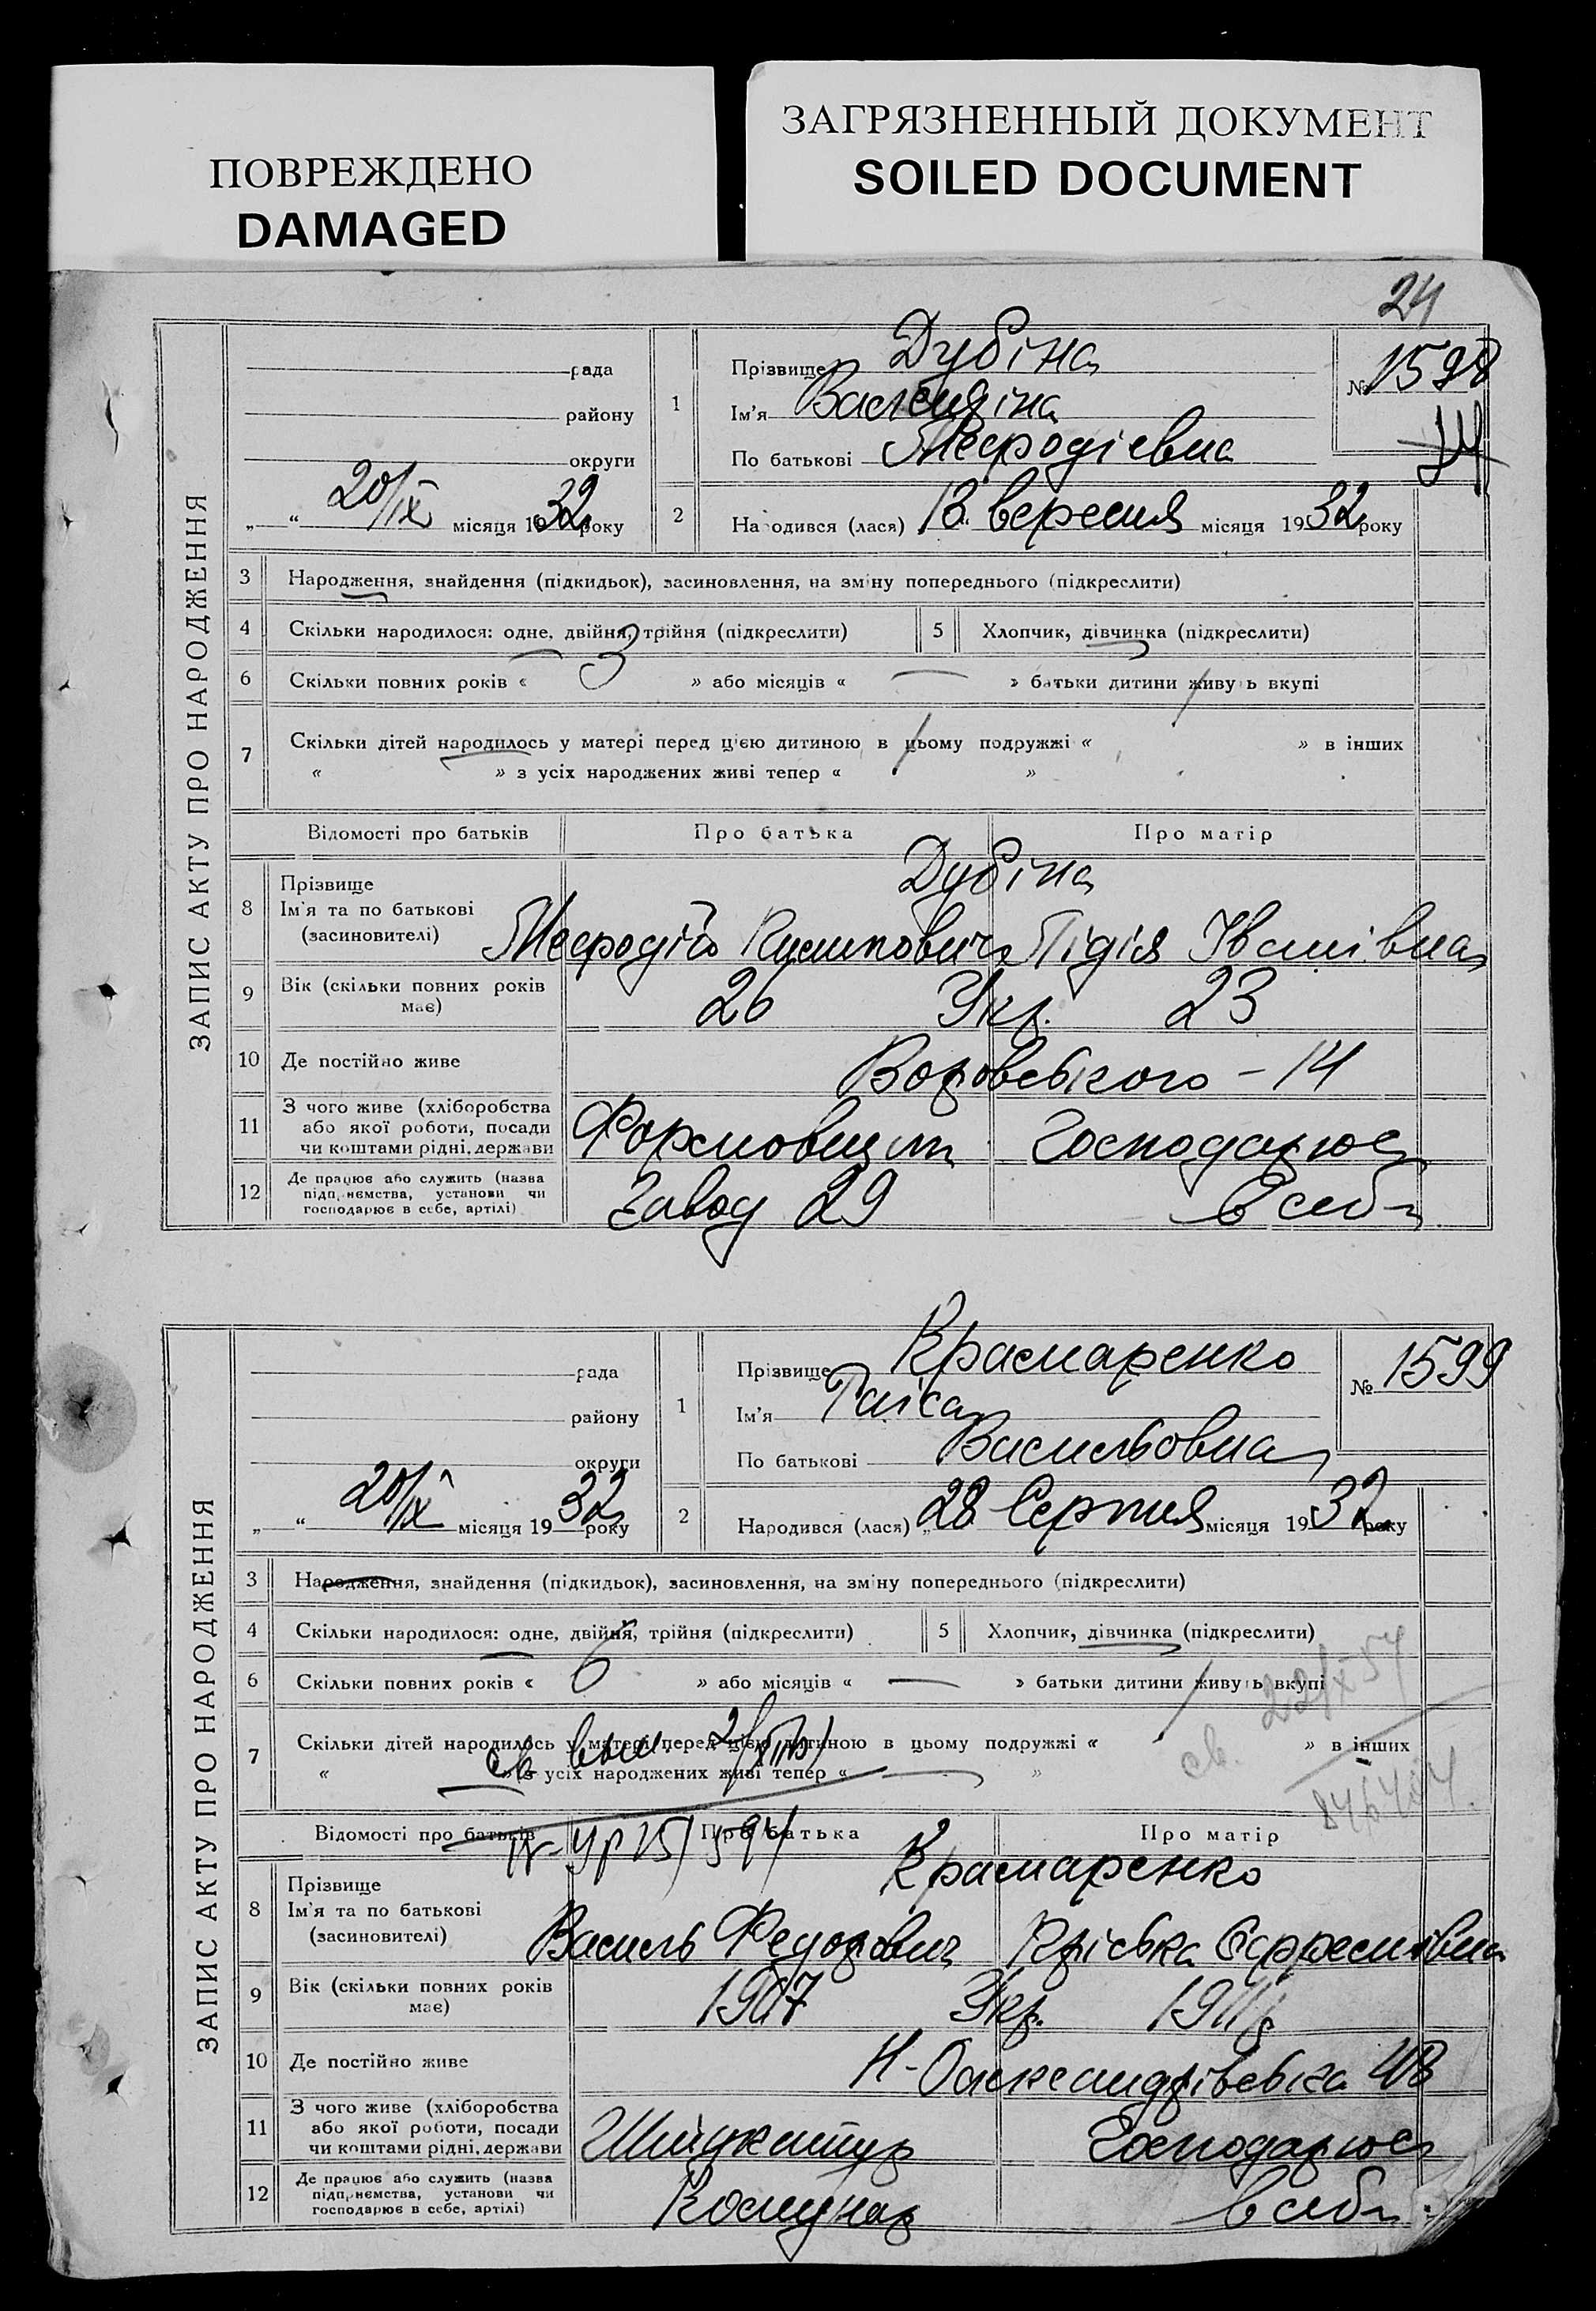 ПОВРЕЖДЕНО
DAMAGED
ЗАГРЯЗНЕННЫЙ ДОКУМЕНТ
SOILED DOCUMENT
24
ЗАПИС АКТУ ПРО НАРОДЖЕННЯ
рада
району
округи
„ “ 20/IX місяця 1932 року
1
Прізвище Дубіна
Ім'я
По батькові Мефодієвна
№ 1598
2
Народився (лася) 13 вересня місяця 1932 року
3 Народження, знайдення (підкидьок), засиновлення, на зміну попереднього (підкреслити)
4 Скільки народилося: одне, двійня, трійня (підкреслити) 5 Хлопчик, дівчинка (підкреслити)
6 Скільки повних років « 3 » або місяців « — » батьки дитини живуть вкупі
7 Скільки дітей народилось у матері перед цією дитиною в цьому подружжі « » в інших
« » з усіх народжених живі тепер « »
Відомості про батьків Про батька Про матір
8 Прізвище Дубіна
Ім'я та по батькові
(засновителі) Мефодій Лідія Іванівна
9 Вік (скільки повних років має) 26 Укр. 23
10 Де постійно живе Воровського – 14
11 З чого живе (хліборобства або якої роботи, посади чи коштами рідні, держави Формовщик Господарює
12 Де працює або служить (назва підприємства, установи чи господарює в себе, артілі) Завод 29 в себе
ЗАПИС АКТУ ПРО НАРОДЖЕННЯ
рада
району
округи
„ “ 20/IX місяця 1932 року
1
Прізвище Крамаренко
Ім'я Таіса
По батькові Васильовна
№ 1599
2
Народився (лася) „ 28 Серпня місяця 1932 року
3 Народження, знайдення (підкидьок), засиновлення, на зміну попереднього (підкреслити)
4 Скільки народилося: одне, двійня, трійня (підкреслити) 5 Хлопчик, дівчинка (підкреслити)
6 Скільки повних років « 6 » або місяців « — » батьки дитини живуть вкупі
7 Скільки дітей народилось у матері перед цією дитиною в цьому подружжі « » в інших
« » з усіх народжених живі тепер « — »
св.
Відомості про батьків Про батька Про матір
8 Прізвище Крамаренко
Ім'я та по батькові
(засиновителі) Василь Федорович
9 Вік (скільки повних років має) 1907 Укр. 1911 р
10 Де постійно живе Н-Олександрівська 48
11 З чого живе (хліборобства або якої роботи, посади чи коштами рідні, держави Штукатур Господарює
12 Де працює або служить (назва підприємства, установи чи господарює в себе, артілі) Комунар в себе